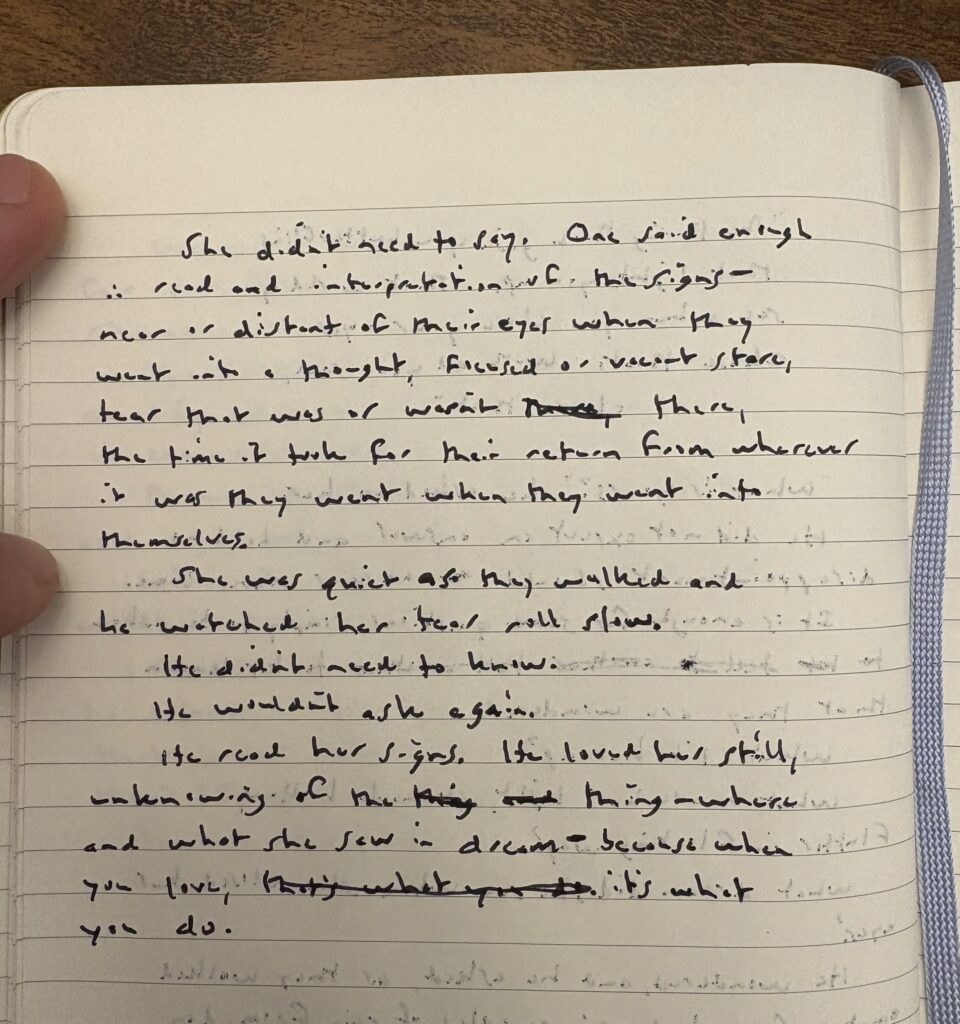 She didn't need to say. One said enough
in read and interpretation of the signs—
near or distant of their eyes when they
went into a thought, focused or vacant stare,
tear that was or wasn't there,
the time it took for their return from wherever
it was they went when they went into
themselves.
She was quiet as they walked and
he watched her tear roll slow.
He didn't need to know.
He wouldn't ask again.
He read her signs. He loved her still,
unknowing of the thing – where
and what she saw in dream – because when
you love, that's what you do. it's what
you do.